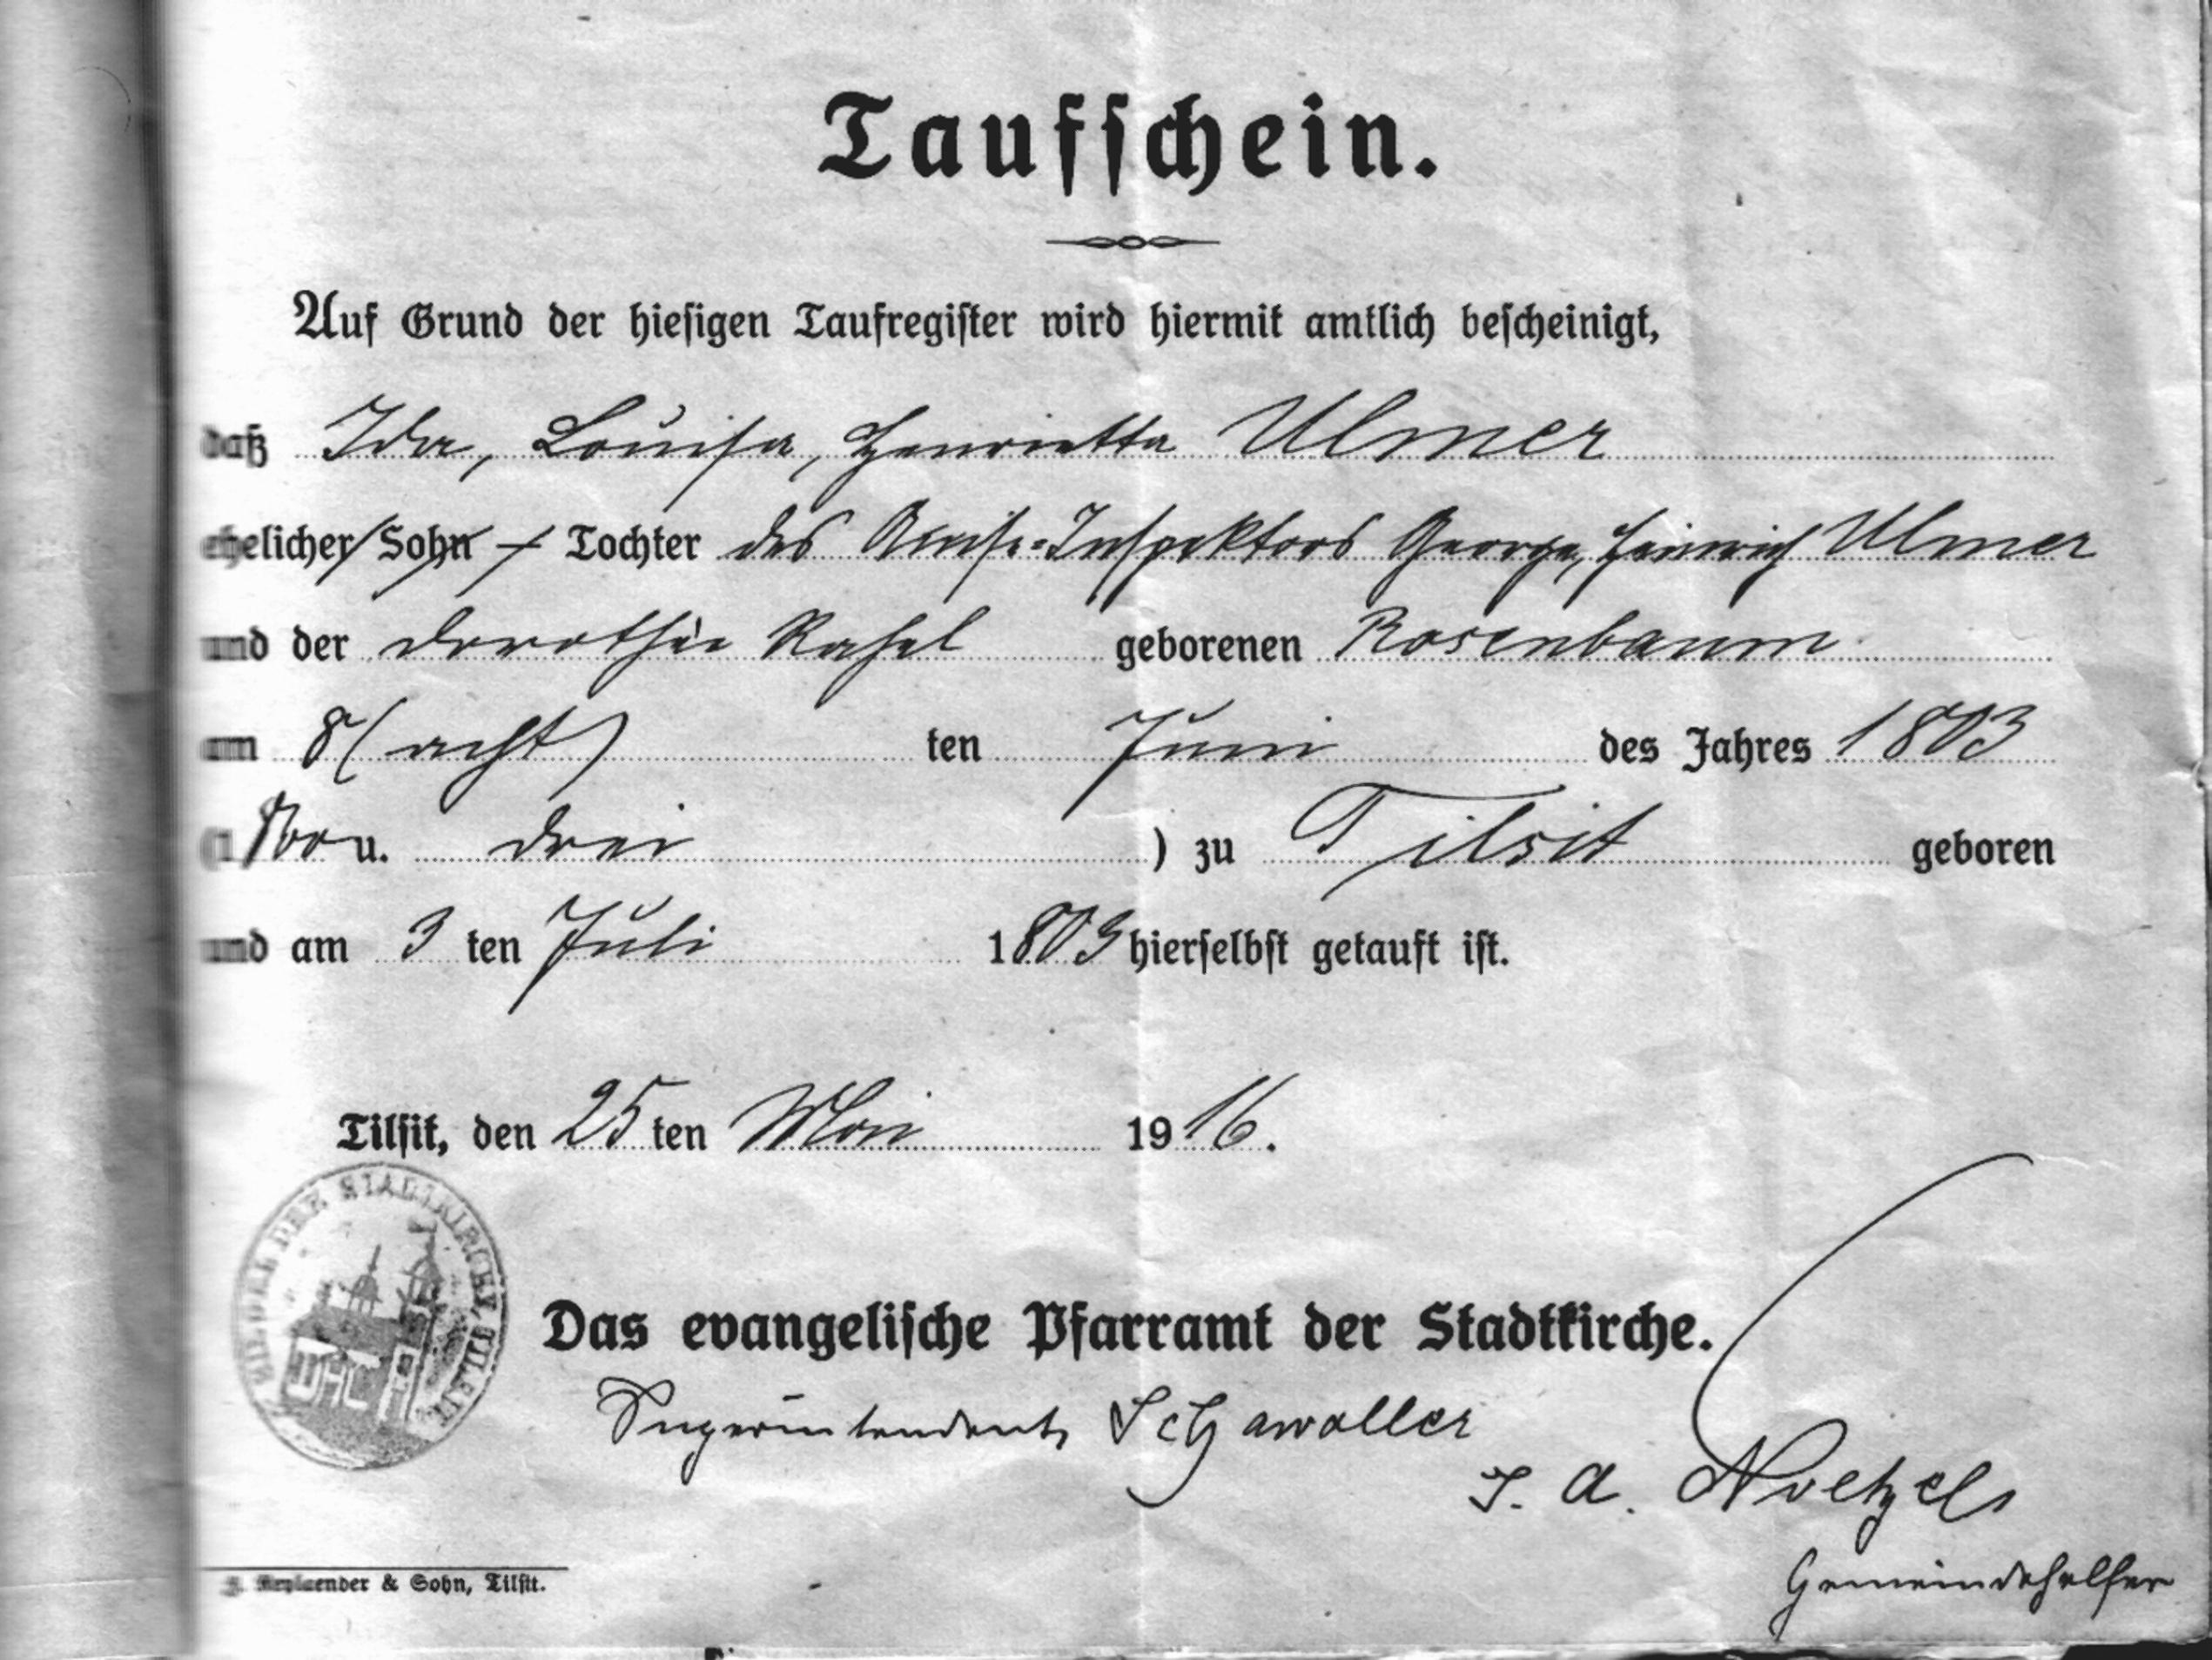 Taufschein.
Auf Grund der hiesigen Taufregister wird hiermit amtlich bescheinigt,
daß Ida, Louise, Henriette Ulmer
ehelicher Sohn – Tochter des Accise-Inspektors George, Heinrich Ulmer
und der Dorothée Rahel geborenen Rosenbaum
am 8 (acht) ten Juni des Jahres 1803
u. drei ) zu Tilsit geboren
und am 3 ten Juli 1803 hierselbst getauft ist.
Tilsit, den 25 ten Mai 1916.
DER STADTKIRCHE TILSIT
Das evangelische Pfarramt der Stadtkirche.
Superintendent Schawaller
I. A. Noetzel
Gemeindehelfer
& Sohn, Tilsit.